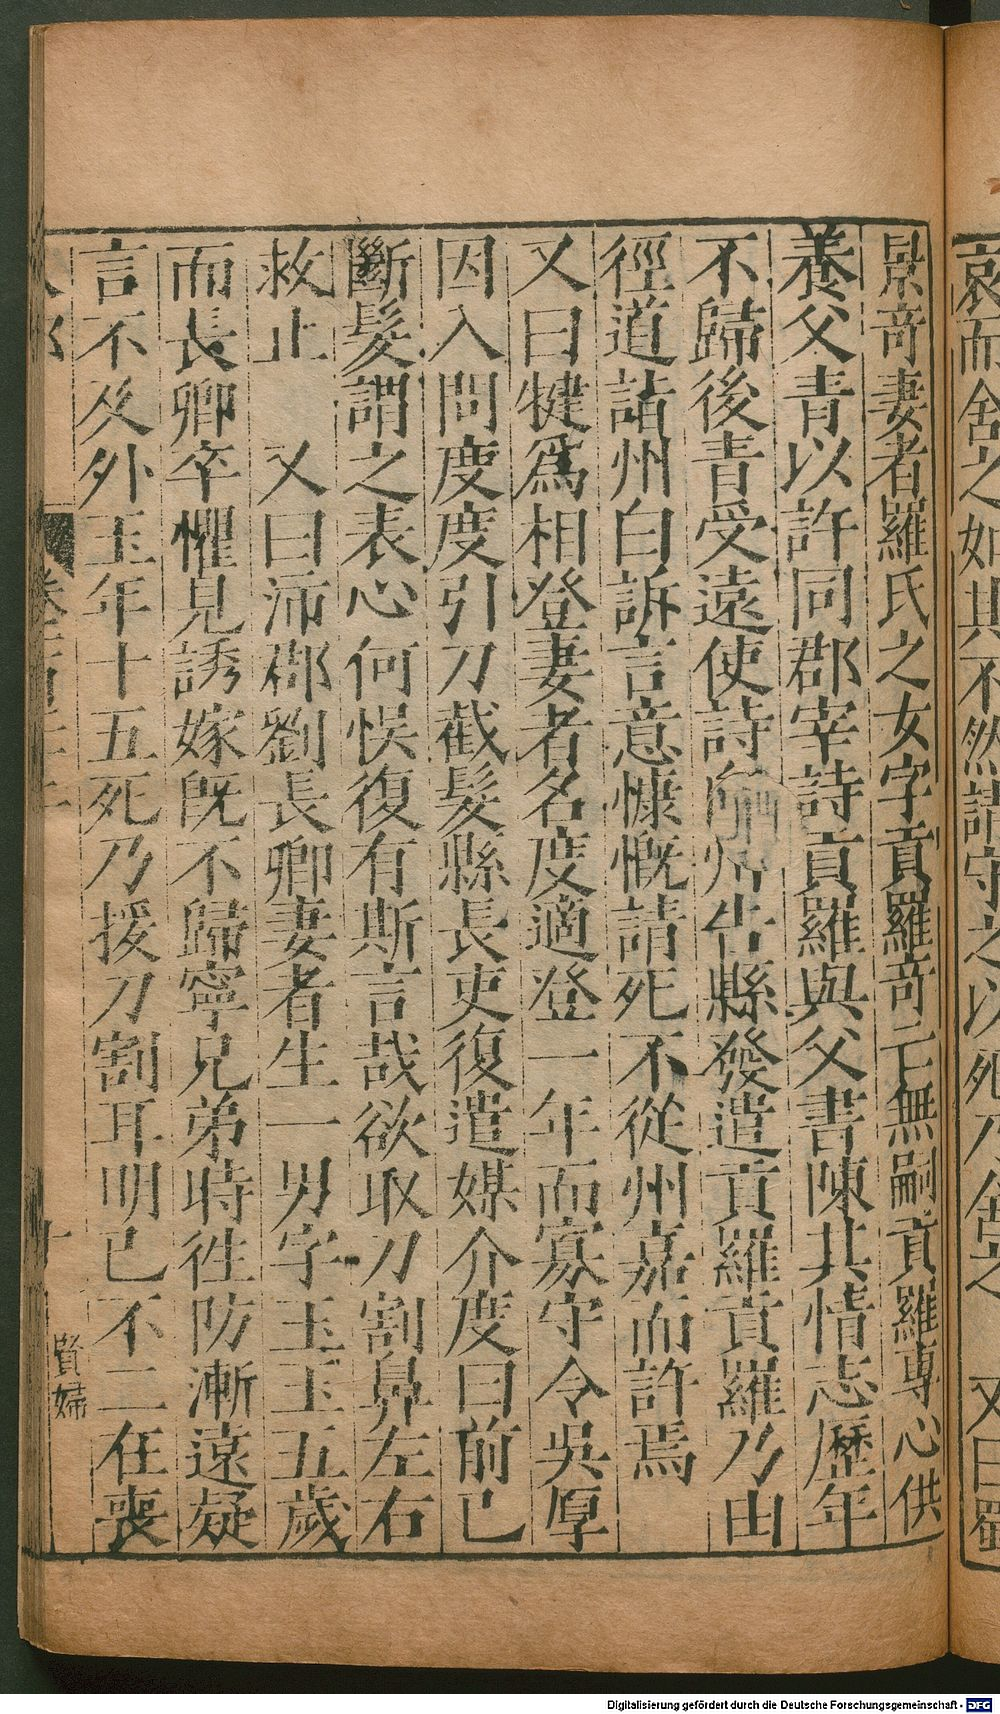 哀而舍之如其不然請守之以死乃舍之 又曰蜀
景奇妻者羅氏之女字貢羅奇亡無嗣貢羅專心供
養父青以許同郡宰詩貢羅與父書陳其情志歷年
不歸後青受遠使詩向州告縣發遣貢羅貢羅乃由
徑道詣州自訴言意慷慨請死不從州嘉而許焉
又曰犍爲相登妻者名度適登一年而寡守令吳厚
因入問度度引刀截髮縣長吏復遣媒介度曰前已
斷髮謂之表心何悞復有斯言哉欲取刀割鼻左右
救止 又曰沛郡劉長卿妻者生一男字玉玉五歲
而長卿卒懼見誘嫁旣不歸寧兄弟時徃防漸遠疑
言不及外玉年十五死乃援刀割耳明已不二在喪
賢婦
Digitalisierung gefördert durch die Deutsche Forschungsgemeinschaft - DFG